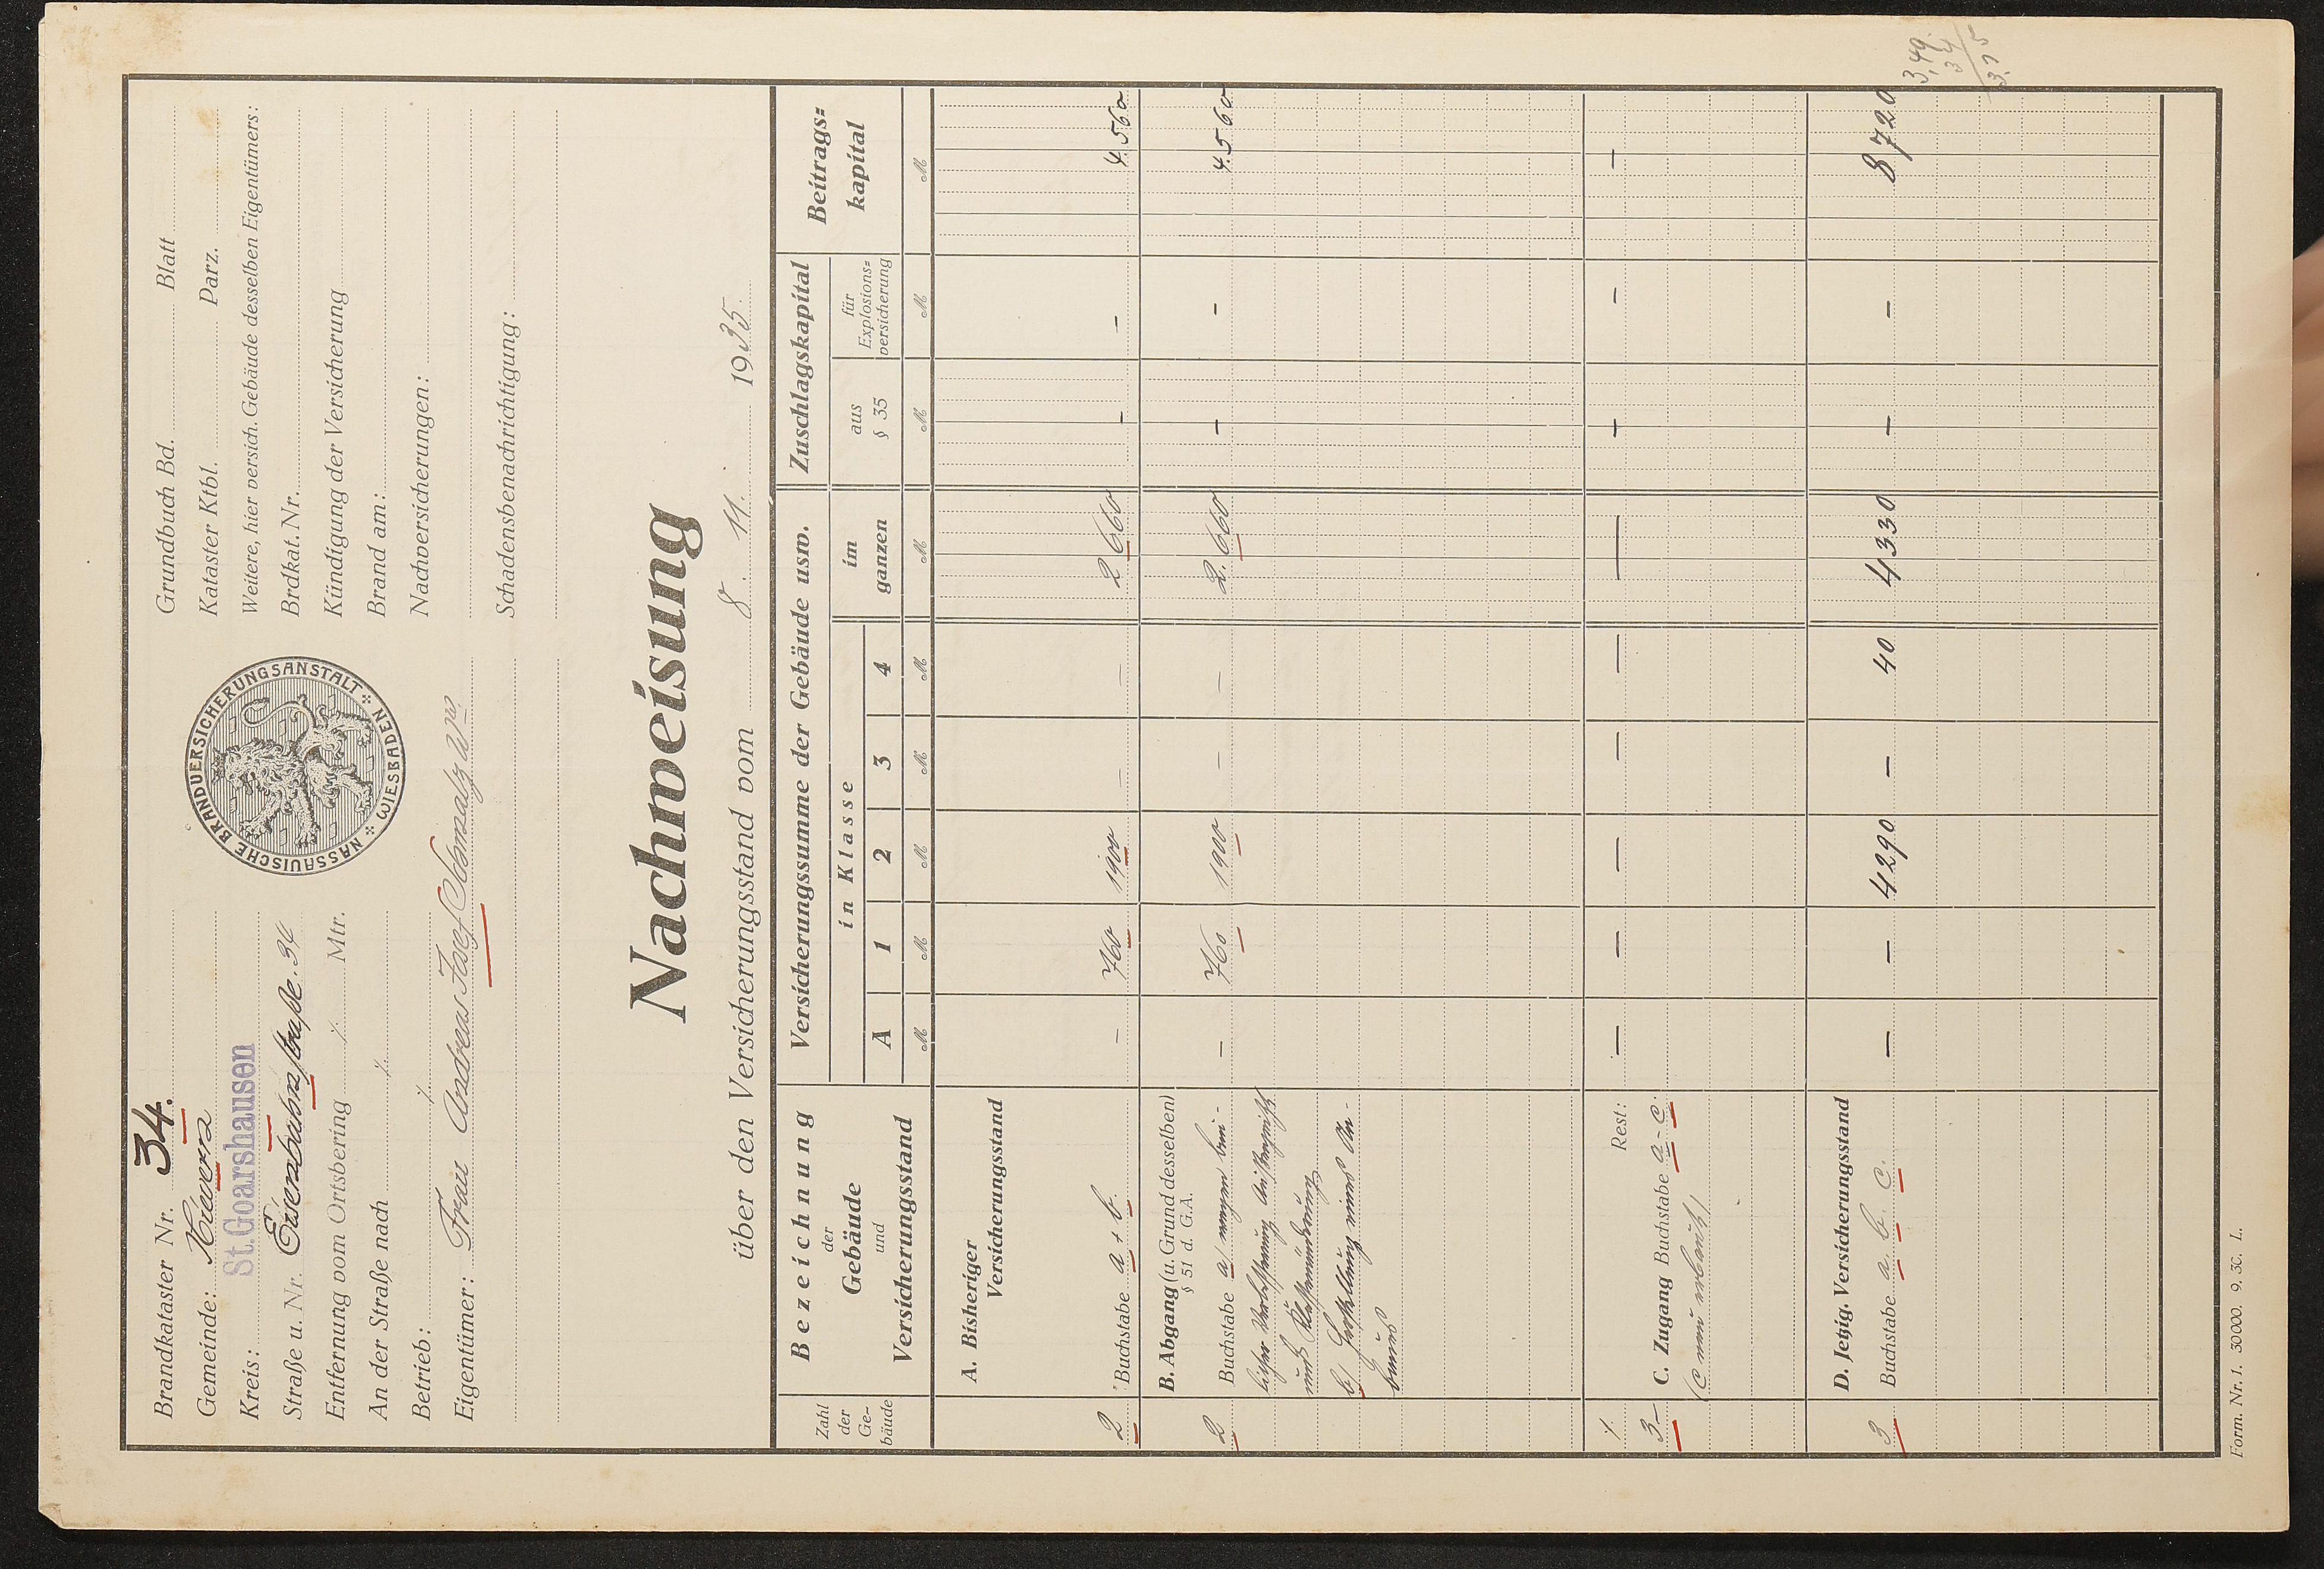 Brandkataster Nr. 34.
Gemeinde: Nievern
Kreis: St. Goarshausen
Straße u. Nr. Eisenbahnstraße. 34
Entfernung vom Ortsbering ./. Mtr.
An der Straße nach ./.
Betrieb: ./.
Eigentümer: Frau Andreas Josef
NASSAUISCHE BRANDVERSICHERUNGSANSTALT
WIESBADEN
Grundbuch Bd. Blatt
Kataster Ktbl. Parz.
Weitere, hier versich. Gebäude desselben Eigentümers:
Brdkat. Nr.
Kündigung der Versicherung
Brand am:
Nachversicherungen:
Schadensbenachrichtigung:
Nachweisung
über den Versicherungsstand vom 8. 11. 1935.
Zahl der Ge-bäude
Bezeichnung
der
Gebäude
und
Versicherungsstand
Versicherungssumme der Gebäude usw.
in Klasse
A 1 2 3 4
im ganzen
Zuschlagskapital
aus § 35
für Explosions-versicherung
Beitrags-kapital
M M M M M M M M M
A. Bisheriger
Versicherungsstand
2 Buchstabe a + b. – 760 1900 – – 2660 – – 4.560
B. Abgang (u. Grund desselben)
§ 51 d. G.A.
2 Buchstabe a) wegen bau- – 760 1900 – – 2.660 – – 4.560
licher Verbesserung
und Klassenänderung
b) Herstellung eines An-
baues
./. Rest: – – – – – — – – –
3 – C. Zugang Buchstabe a - c.
(c neu erbaut)
D. Jetzig. Versicherungsstand
3 Buchstabe a. b. c. – – 4290 – 40 4330 – – 8720
3,49.
34
Form. Nr. 1. 30000. 9. 30. L.